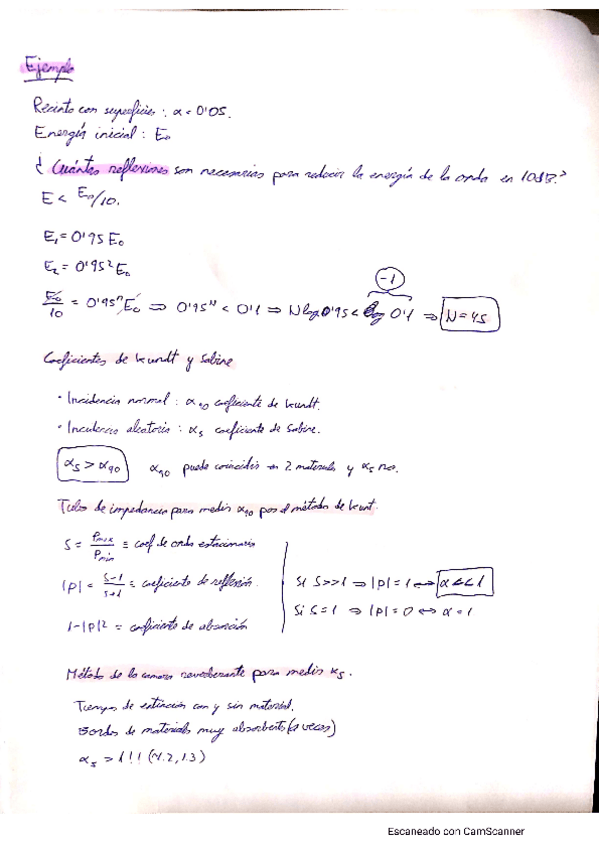 Ejemplo
Recinto con superficies : α = 0'05.
Energía inicial : E₀
¿ Cuántas reflexiones son necesarias para reducir la energía de la onda en 10dB?
E < E₀/10.
E₁ = 0'95 E₀
E₂ = 0'95² E₀
-1
E₀/10 = 0'95ᴺ E₀ ⇒ 0'95ᴺ < 0'1 ⇒ N log 0'95 < log 0'1 ⇒ N = 45
Coeficientes de Kundt y Sabine
· Incidencia normal : α₉₀ coeficiente de Kundt.
· Incidencia aleatoria : αₛ coeficiente de Sabine.
αₛ > α₉₀ α₉₀ puede coincidir en 2 materiales y αₛ no.
Tubo de impedancia para medir α₉₀ por el método de Kunt.
S = Pmax/Pmin ≡ coef de onda estacionaria
|p| = S-1/S+1 ≡ coeficiente de reflexión.
Si S>>1 ⇒ |p| = 1 ↔ α<<1
Si S=1 ⇒ |p| = 0 ↔ α = 1
1-|p|² = coeficiente de absorción
Método de la camara reverberante para medir αₛ.
Tiempos de extinción con y sin material.
Bordes de materiales muy absorbentes (a veces)
αₛ > 1!! (1.2, 1.3)
Escaneado con CamScanner